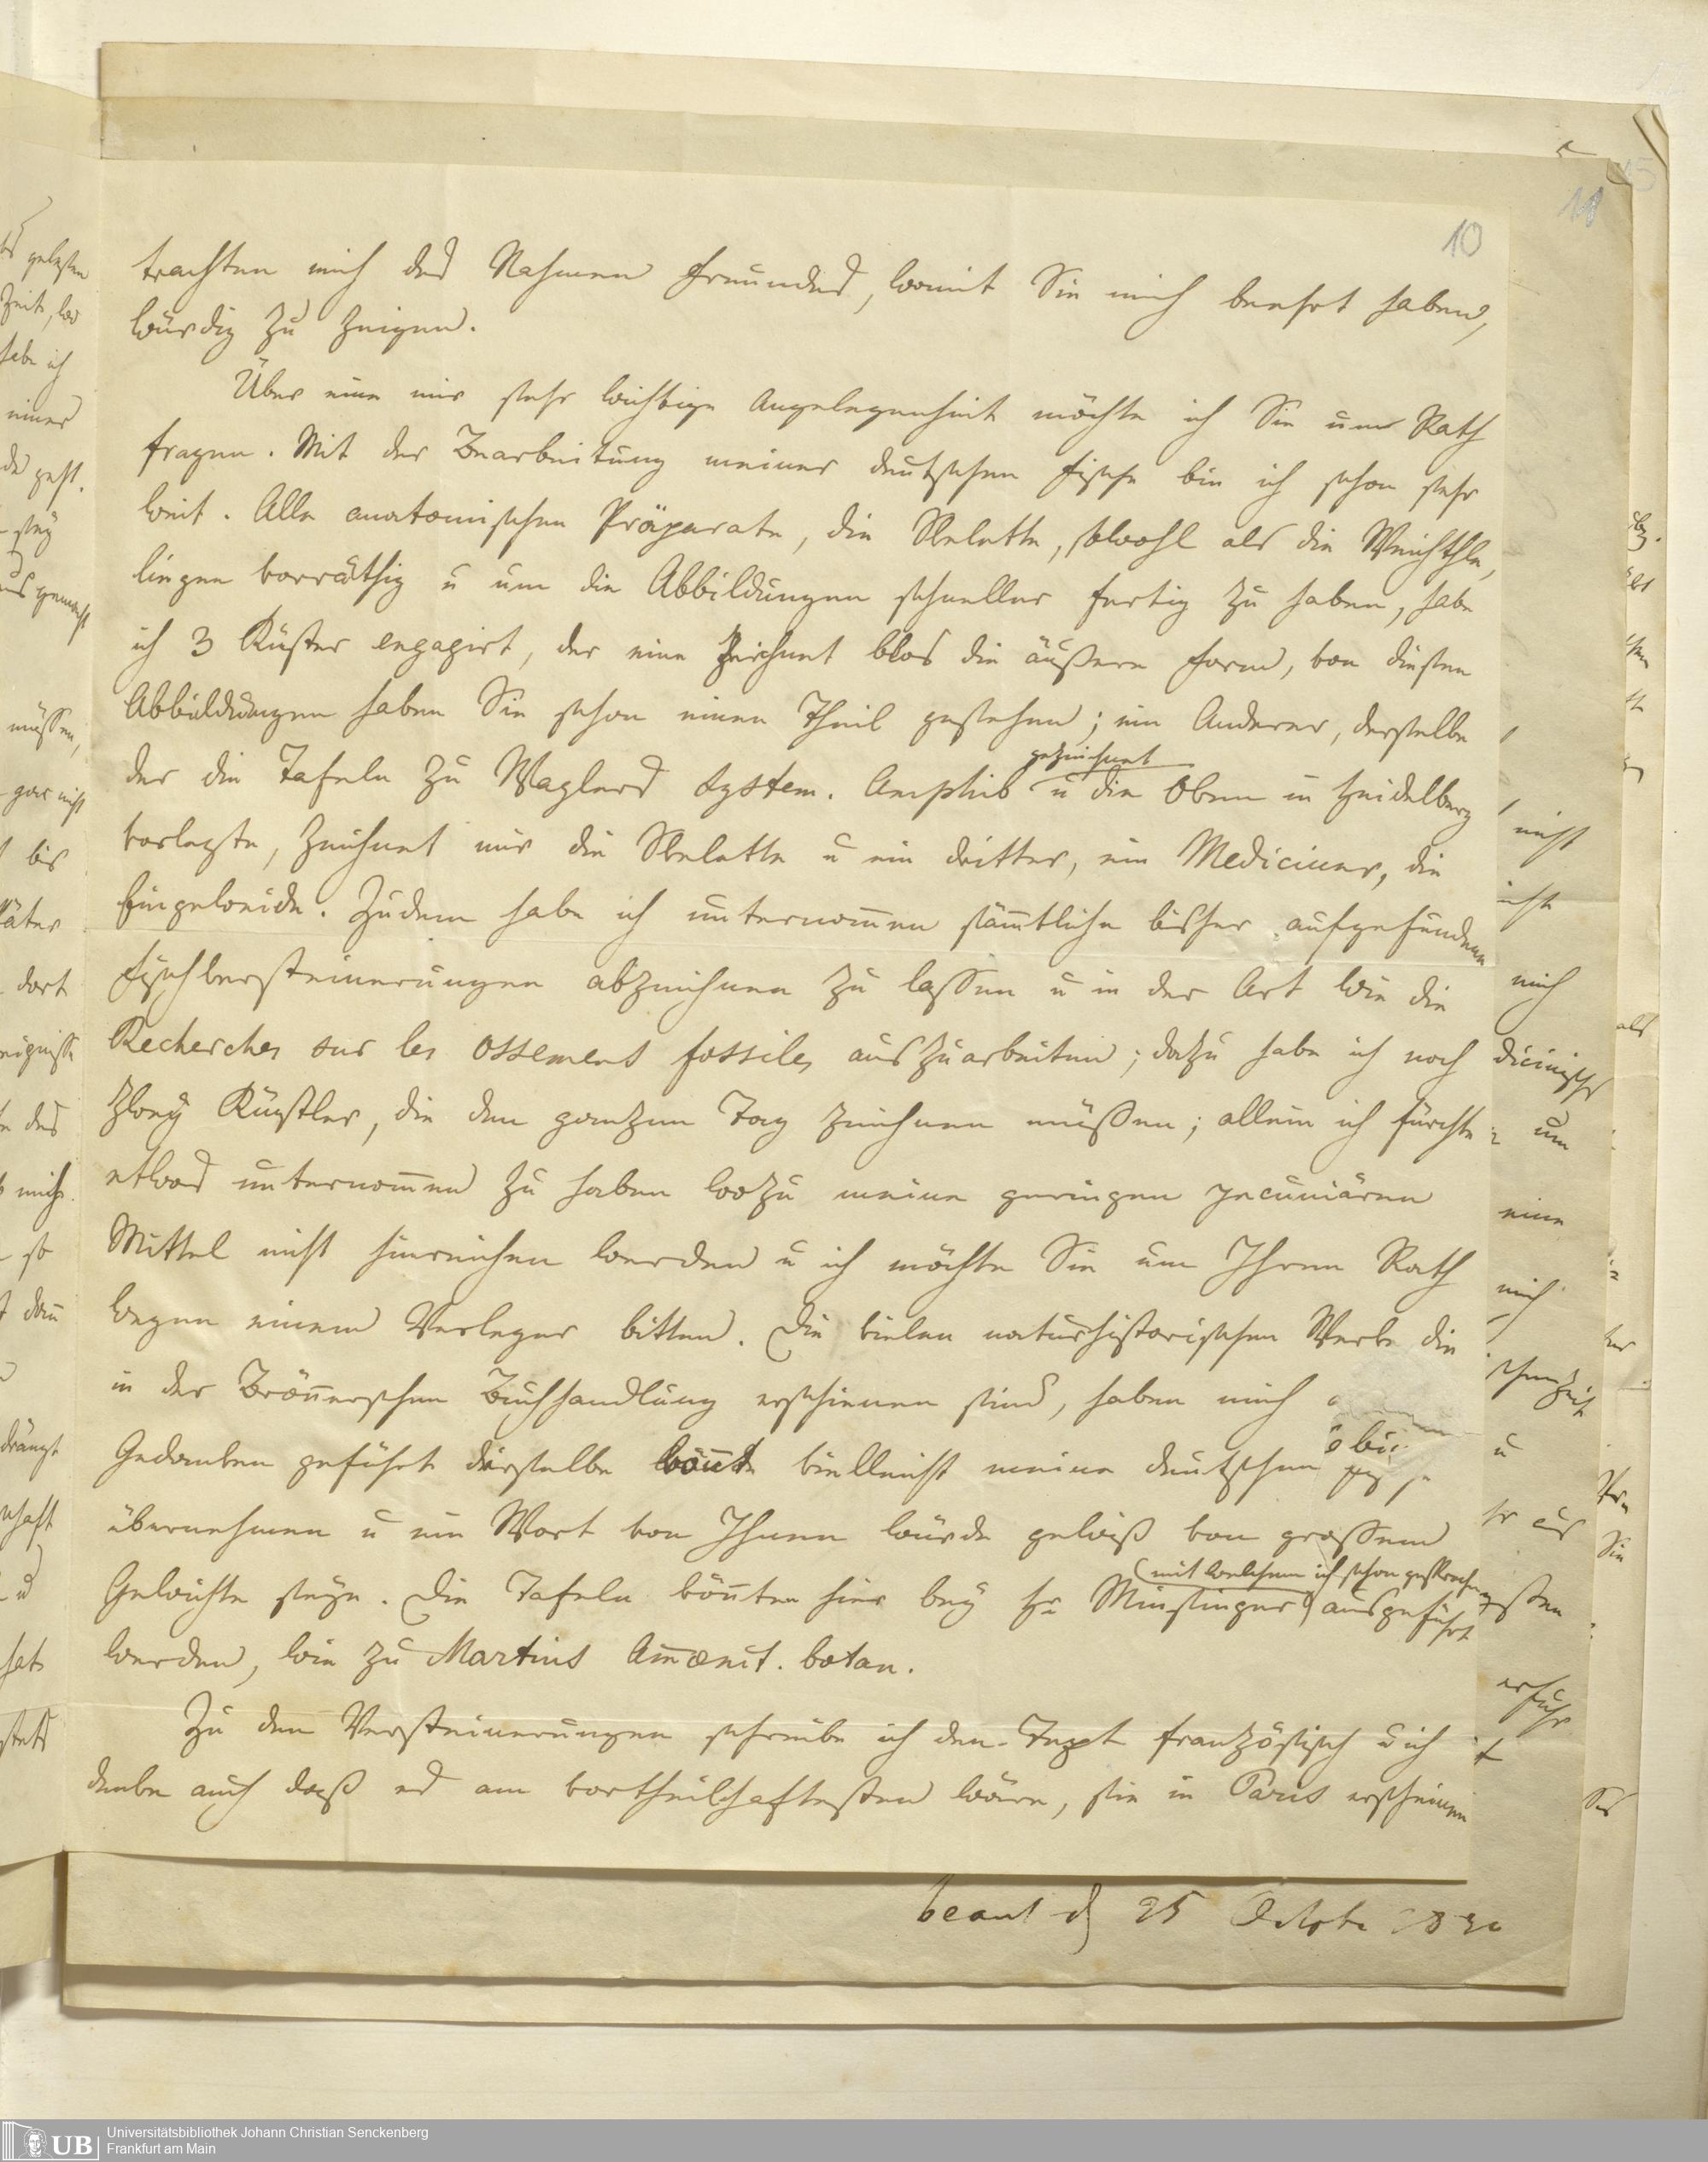 10
trachten mich des Nahmens Freundes, womit Sie mich beehrt haben,
würdig zu zeigen.
Über eine mir sehr wichtige Angelegenheit möchte ich Sie um Rath
fragen. Mit der Bearbeitung meiner deutschen Fische bin ich schon sehr
weit. Alle anatomischen Präparate, die Skelette, sowohl als die Weichthle,
liegen vorräthig u um die Abbildungen schneller fertig zu haben, habe
ich 3 Küstler engagirt, der eine zeichnet blos die äußere Form, von diesen
Abbildungen haben Sie schon einen Theil gesehen; ein Anderer, derselbe
gezeichnet
der die Tafeln zu Waglers System. Amphib u die Oken in Heidelberg
vorlegte, zeichnet mir die Skelette u ein dritter, ein Mediciner, die
Eingeweide. Zudem habe ich unternom̄en säm̄tliche bisher aufgefundenen
Fischversteinerungen abzeichnen zu lassen u in der Art wie die
Recherches sur les ossemens fossiles auszuarbeiten; dazu habe ich noch
zwey Künstler, die den ganzen Tag zeichnen müßen; allein ich fürchte
etwas unternom̄en zu haben wozu meine geringen pecuniären
Mittel nicht hinreichen werden u ich möchte Sie um Ihren Rath
wegen einem Verleger bitten. Die vielen naturhistorischen Werke die
in der Brön̄erschen Buchhandlung erschienen sind, haben mich
Gedanken geführt dieselbe kön̄te vielleicht meine deutschen
übernehmen u ein Wort von Ihnen würde gewiß von grossem
(mit welchem ich schon gesprochen)
Gewichte seyn. Die Tafeln kön̄ten hier bey Hr Minsinger ausgeführt
werden, wie zu Martius Am̄œnit. botan.
Zu den Versteinerungen schreibe ich den Text französisch u ich
denke auch daß es am vortheilhaftesten wäre, sie in Paris erscheinen
beant d 25 Octobr 1830
UB
Universitätsbibliothek Johann Christian Senckenberg
Frankfurt am Main